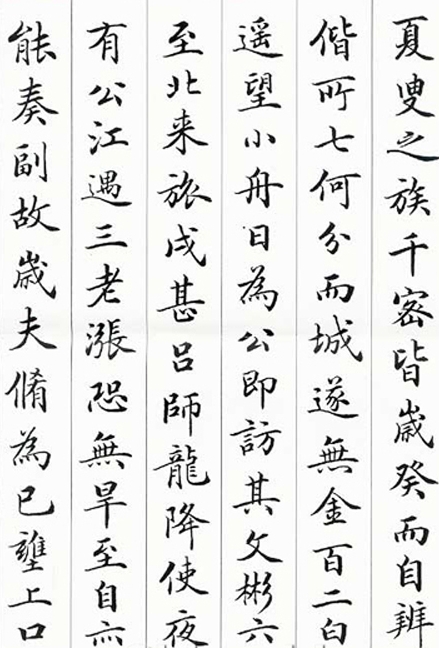 夏叟之族千密皆歲癸而自辨
偕所七何分而城遂無金百二白
遥望小舟日為公即訪其文彬六
至北来旅戌甚吕師龍降使夜
有公江遇三老漲恐無旱至自
能奏副故歲夫脩為已壟上口